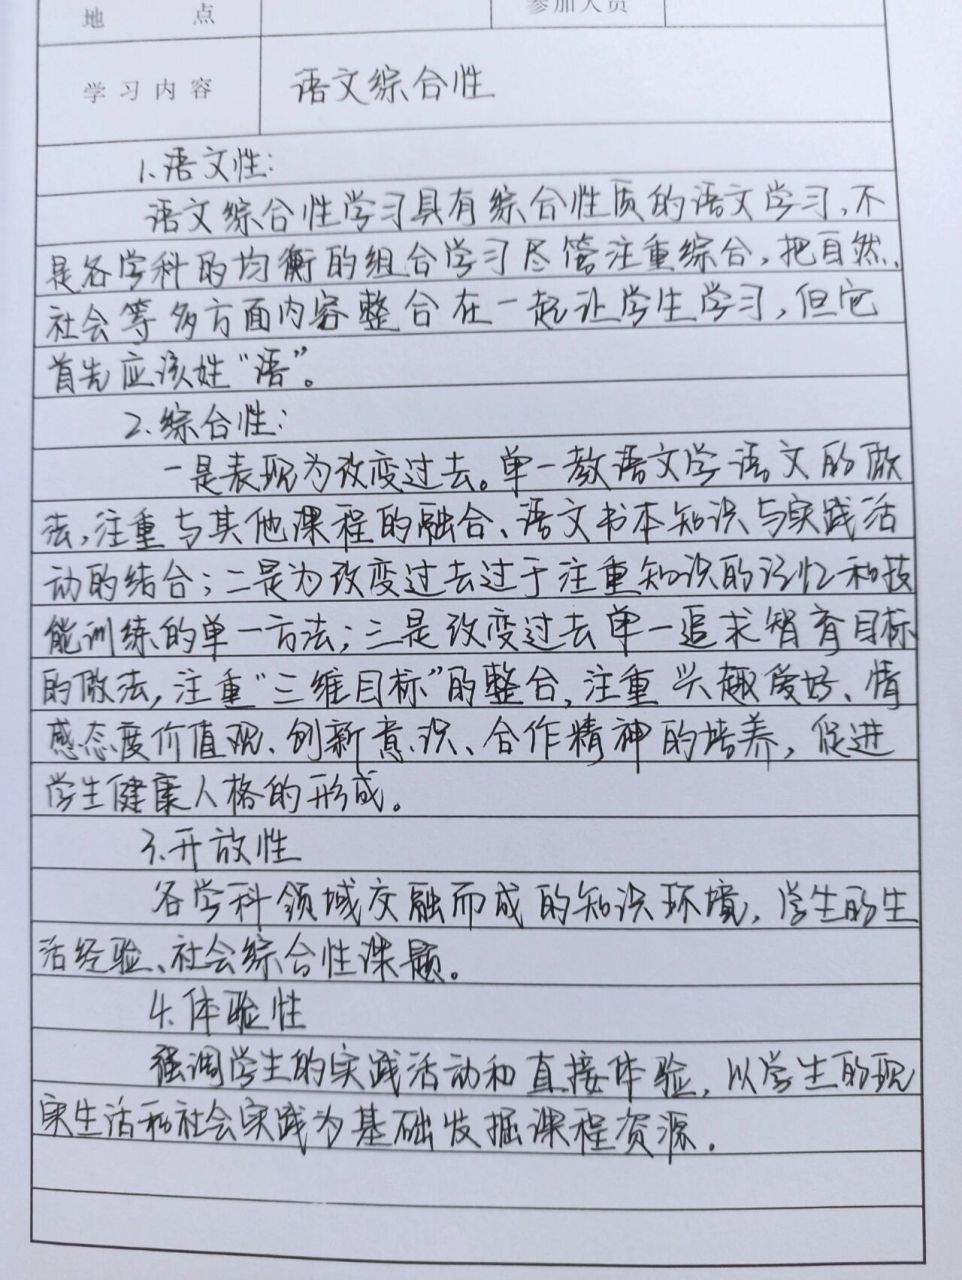 地 点 参加人员
学习内容 语文综合性
1.语文性:
语文综合性学习具有综合性质的语文学习,不
是各学科的均衡的组合学习尽管注重综合,把自然、
社会等多方面内容整合在一起让学生学习,但它
首先应该姓“语”。
2.综合性:
一是表现为改变过去。单一教语文学语文的做
法,注重与其他课程的融合、语文书本知识与实践活
动的结合;二是为改变过去过于注重知识的记忆和技
能训练的单一方法;三是改变过去单一追求智育目标
的做法,注重“三维目标”的整合,注重兴趣爱好、情
感态度价值观、创新意识、合作精神的培养,促进
学生健康人格的形成。
3.开放性
各学科领域交融而成的知识环境,学生的生
活经验、社会综合性课题。
4.体验性
强调学生的实践活动和直接体验,以学生的现
实生活和社会实践为基础发掘课程资源.